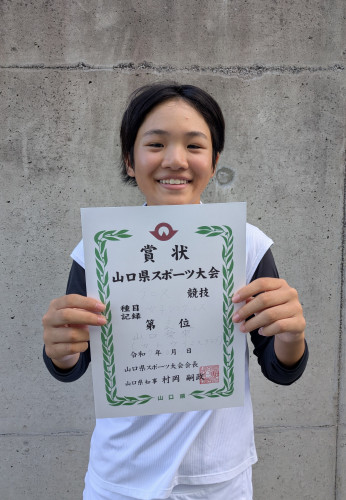 賞状
山口県スポーツ大会
競技
種目
記録
第 位
令和 年 月 日
山口県スポーツ大会会長
山口県知事 村岡 嗣政
山口県